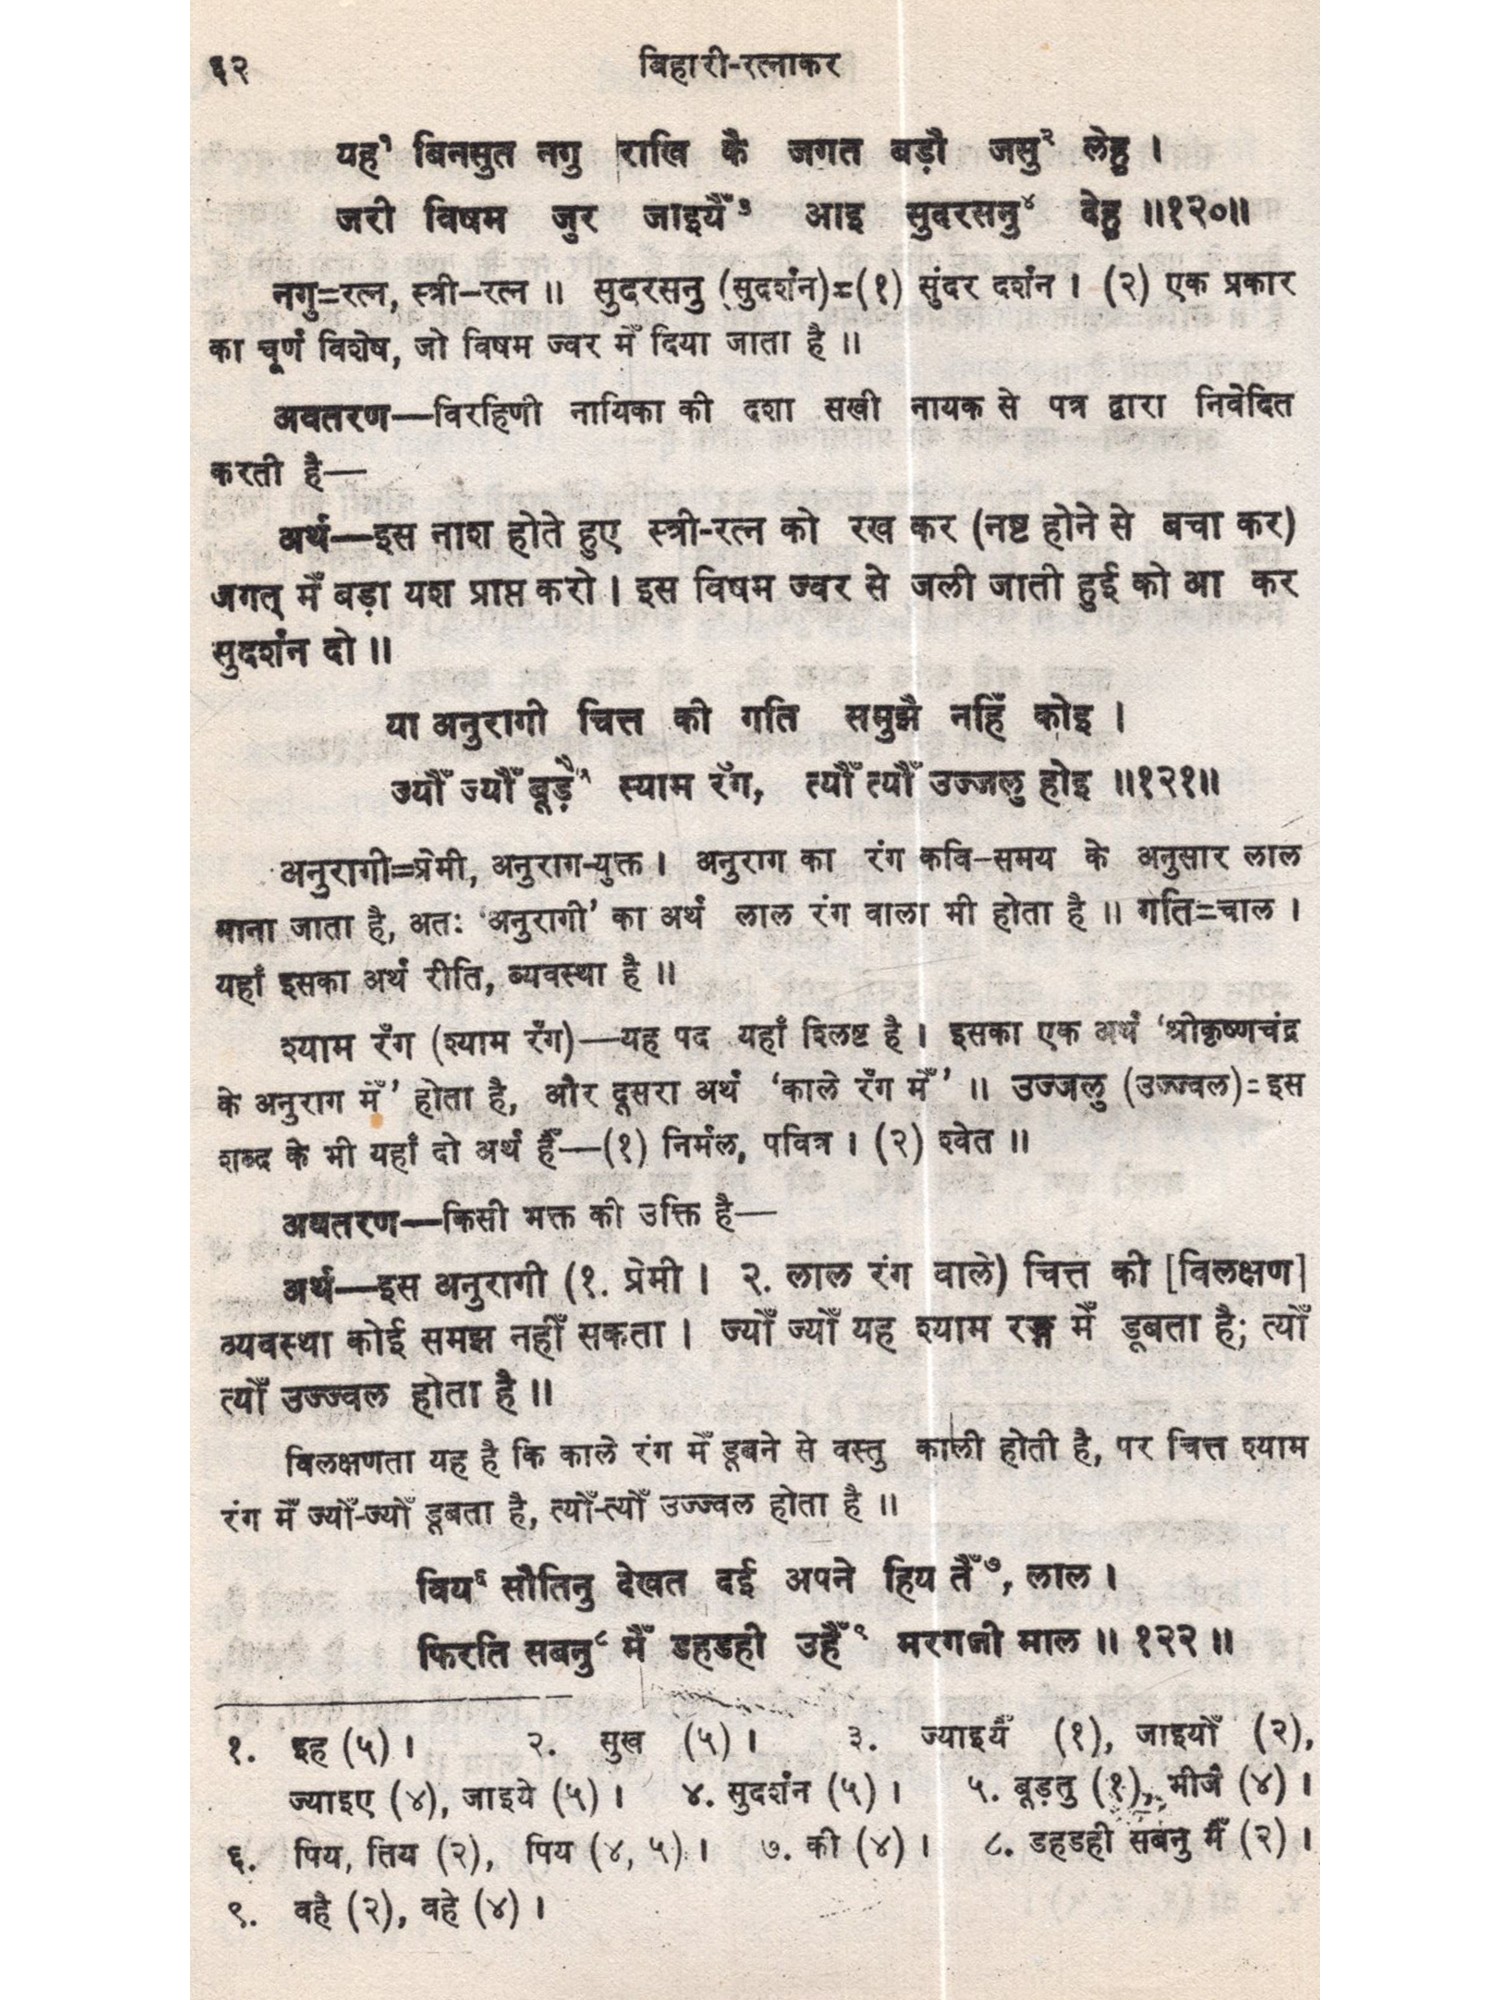 ६२ बिहारी-रत्नाकर
यह¹ बिनसुत नगु राखि कै जगत बड़ौ जसु² लेहु ।
जरी विषम जुर जाइयैँ³ आइ सुदरसनु⁴ देहु ॥१२०॥
नगु=रत्न, स्त्री-रत्न ॥ सुदरसनु (सुदर्शन)=(१) सुंदर दर्शन । (२) एक प्रकार
का चूर्ण विशेष, जो विषम ज्वर मेँ दिया जाता है ॥
अवतरण—विरहिणी नायिका की दशा सखी नायक से पत्र द्वारा निवेदित
करती है—
अर्थ—इस नाश होते हुए स्त्री-रत्न को रख कर (नष्ट होने से बचा कर)
जगत् मेँ बड़ा यश प्राप्त करो । इस विषम ज्वर से जली जाती हुई को आ कर
सुदर्शन दो ॥
या अनुरागी चित्त की गति समुझै नहिँ कोइ ।
ज्यौँ ज्यौँ बूड़ै⁵ स्याम रँग, त्यौँ त्यौँ उज्जलु होइ ॥१२१॥
अनुरागी=प्रेमी, अनुराग-युक्त । अनुराग का रंग कवि-समय के अनुसार लाल
माना जाता है, अतः ‘अनुरागी’ का अर्थ लाल रंग वाला भी होता है ॥ गति=चाल ।
यहाँ इसका अर्थ रीति, व्यवस्था है ॥
श्याम रँग (श्याम रँग)—यह पद यहाँ श्लिष्ट है । इसका एक अर्थ ‘श्रीकृष्णचंद्र
के अनुराग मेँ’ होता है, और दूसरा अर्थ ‘काले रँग मेँ’ ॥ उज्जलु (उज्ज्वल)=इस
शब्द के भी यहाँ दो अर्थ हैँ—(१) निर्मल, पवित्र । (२) श्वेत ॥
अवतरण—किसी भक्त की उक्ति है—
अर्थ—इस अनुरागी (१. प्रेमी । २. लाल रंग वाले) चित्त की [विलक्षण]
व्यवस्था कोई समझ नहीँ सकता । ज्योँ ज्योँ यह श्याम रङ्ग मेँ डूबता है; त्योँ
त्योँ उज्ज्वल होता है ॥
विलक्षणता यह है कि काले रंग मेँ डूबने से वस्तु काली होती है, पर चित्त श्याम
रंग मेँ ज्योँ-ज्योँ डूबता है, त्योँ-त्योँ उज्ज्वल होता है ॥
विय⁶ सौतिनु देखत दई अपने हिय तैँ⁷, लाल ।
फिरति सबनु⁸ मैँ डहडही उहैँ⁹ मरगजी माल ॥ १२२ ॥
१. इह (५) । २. सुख (५) । ३. ज्याइयैँ (१), जाइयोँ (२),
ज्याइए (४), जाइये (५) । ४. सुदर्शन (५) । ५. बूड़तु (१), भीजै (४) ।
६. पिय, तिय (२), पिय (४, ५) । ७. की (४) । ८. डहडही सबनु मैँ (२) ।
९. वहै (२), वहे (४) ।